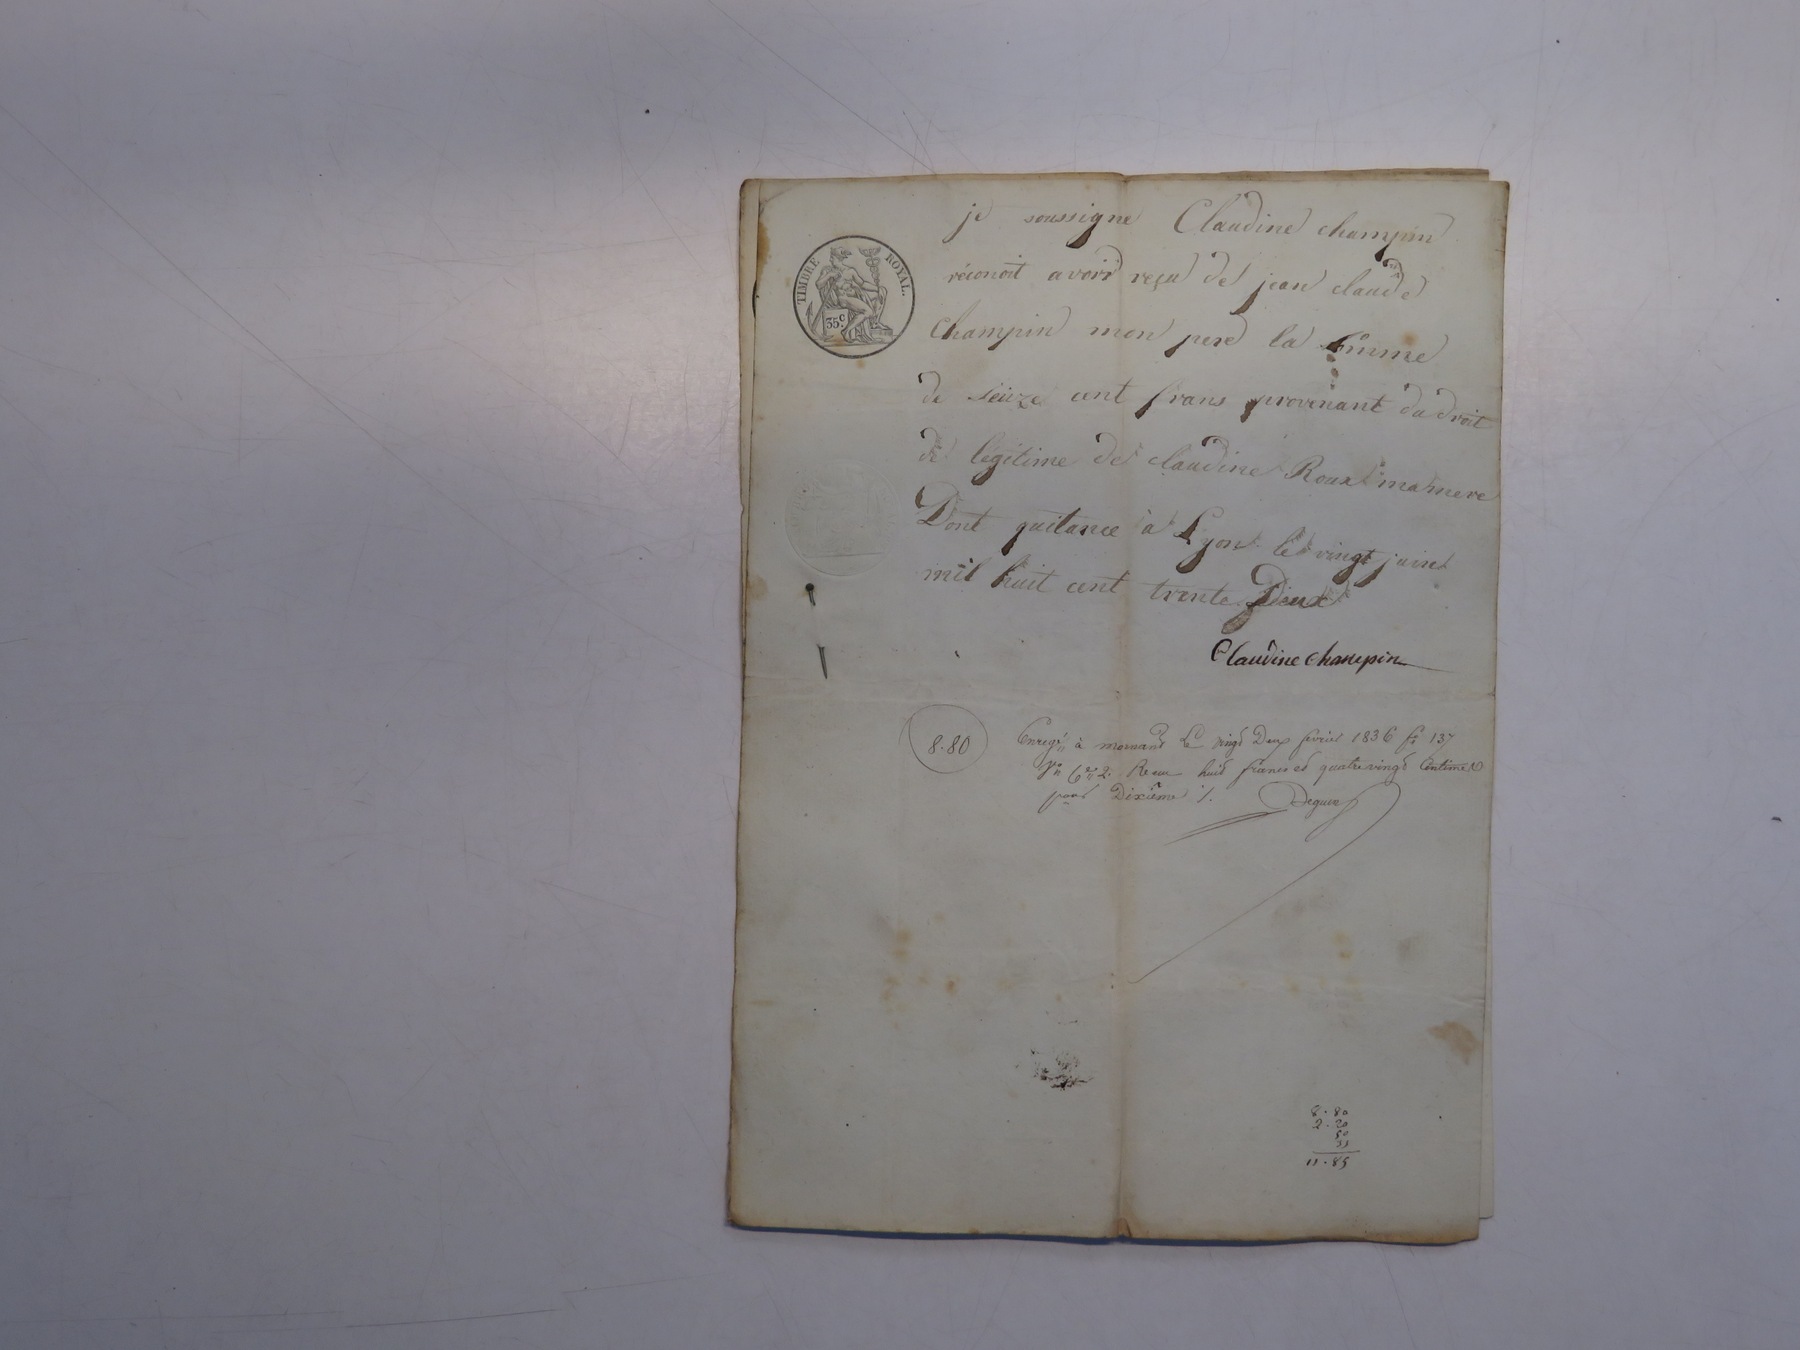 TIMBRE ROYAL.
35c
je soussigne Claudine champin
réconoit avoir reçu de jean claude
champin mon pere la somme
de seize cent frans provenant du droit
de légitime de claudine Roux ma mere
Dont quitance à Lyon le vingt juin
mil huit cent trente Deux
Claudine Champin
8.80
Enregé à mornand Le vingt Deux fevrier 1836 fo 137
Vo Co 2 Recu huit francs et quatrevingt Centimes
pour Dixième
8.80
2.20
50
35
11.85